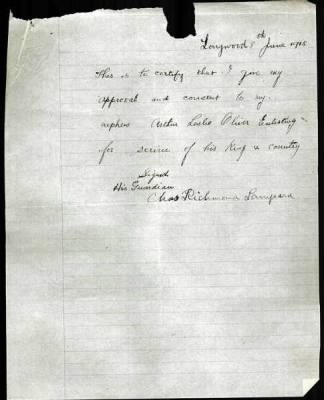 Longwood 8th June 1915
This is to certify that I give my
approval and consent to my
nephew Arthur Leslie Oliver Enlisting
for service of his King & country
Signed
His Guardian
Chas Richmond Lampard